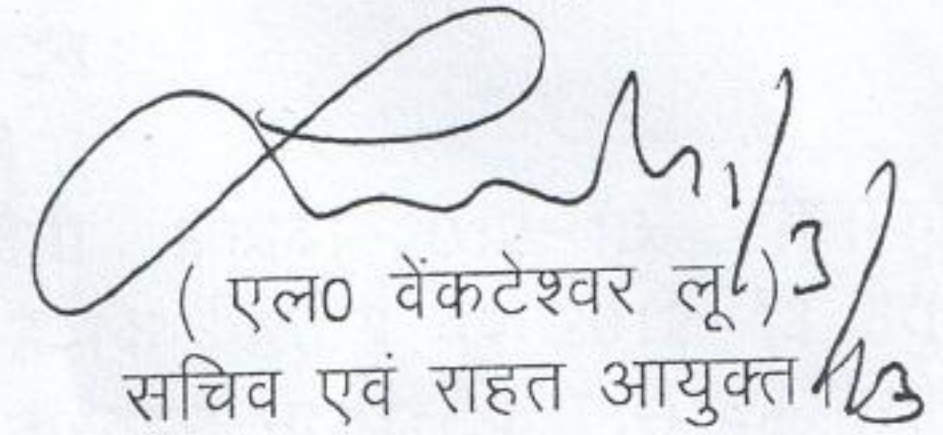 ( एल0 वेंकटेश्वर लू )
सचिव एवं राहत आयुक्त